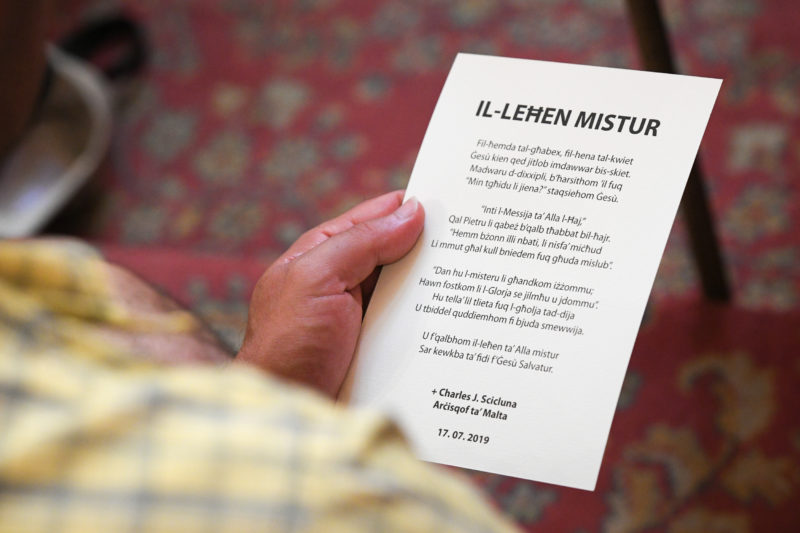 IL-LEĦEN MISTUR
Fil-ħemda tal-għabex, fil-hena tal-kwiet
Ġesù kien qed jitlob imdawwar bis-skiet.
Madwaru d-dixxipli, b'ħarsithom 'il fuq
"Min tgħidu li jiena?" staqsiehom Ġesù.
"Inti l-Messija ta' Alla l-Ħaj,"
Qal Pietru li qabeż b'qalb tħabbat bil-ħajr.
"Hemm bżonn illi nbati, li nisfa' miċħud
Li mmut għal kull bniedem fuq għuda mislub".
"Dan hu l-misteru li għandkom iżżommu;
Hawn fostkom li l-Glorja se jilmħu u jdommu".
Hu tella' lil tlieta fuq l-għolja tad-dija
U tbiddel quddiemhom fi bjuda smewwija.
U f'qalbhom il-leħen ta' Alla mistur
Sar kewkba ta' fidi f'Ġesù Salvatur.
+ Charles J. Scicluna
Arċisqof ta' Malta
17. 07. 2019